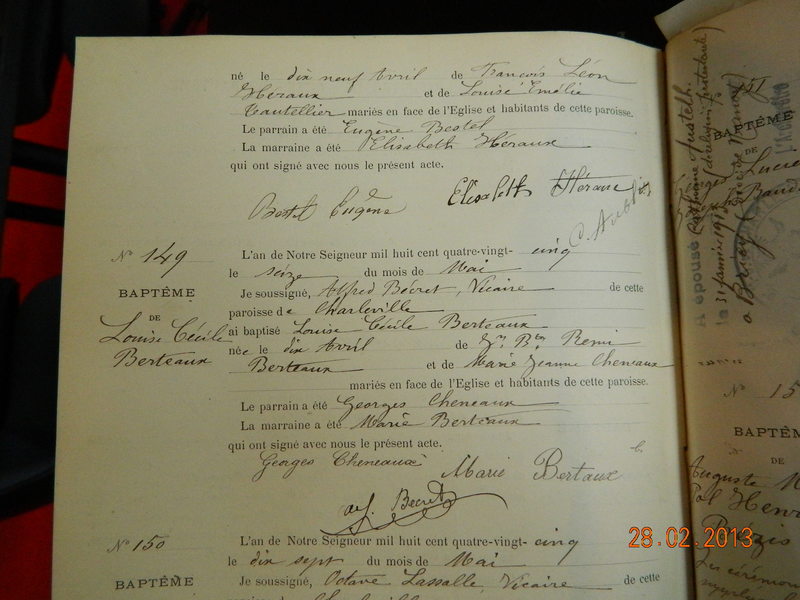 né le dix neuf Avril de François Léon
Héraux et de Louise Emélie
Tautellier mariés en face de l'Eglise et habitants de cette paroisse.
Le parrain a été Eugène Bestel
La marraine a été Elisabeth Héraux
qui ont signé avec nous le présent acte.
Bestel Eugène
Elisabeth Héraux
No 149
BAPTÊME
DE
Louise Cécile
Berteaux
L'an de Notre Seigneur mil huit cent quatre-vingt-cinq
le seize du mois de Mai
Je soussigné, Alfred Bécret, Vicaire de cette
paroisse de Charleville
ai baptisé Louise Cécile Berteaux
née le dix Avril de Jn Bte Remi
Berteaux et de Marie Jeanne Cheneaux
mariés en face de l'Eglise et habitants de cette paroisse.
Le parrain a été Georges Cheneaux
La marraine a été Marie Berteaux
qui ont signé avec nous le présent acte.
Georges Cheneaux
Marie Bertaux
Bécret
No 150
BAPTÊME
L'an de Notre Seigneur mil huit cent quatre-vingt-cinq
le dix sept du mois de Mai
Je soussigné, Octave Lassalle, Vicaire de cette
151
BAPTÊME
DE
Georges Lucien
A épousé
le 31 janvier 1913
à Briey
No 15
BAPTÊM
DE
Auguste
Pol Henri
Les cérémon
28.02.2013